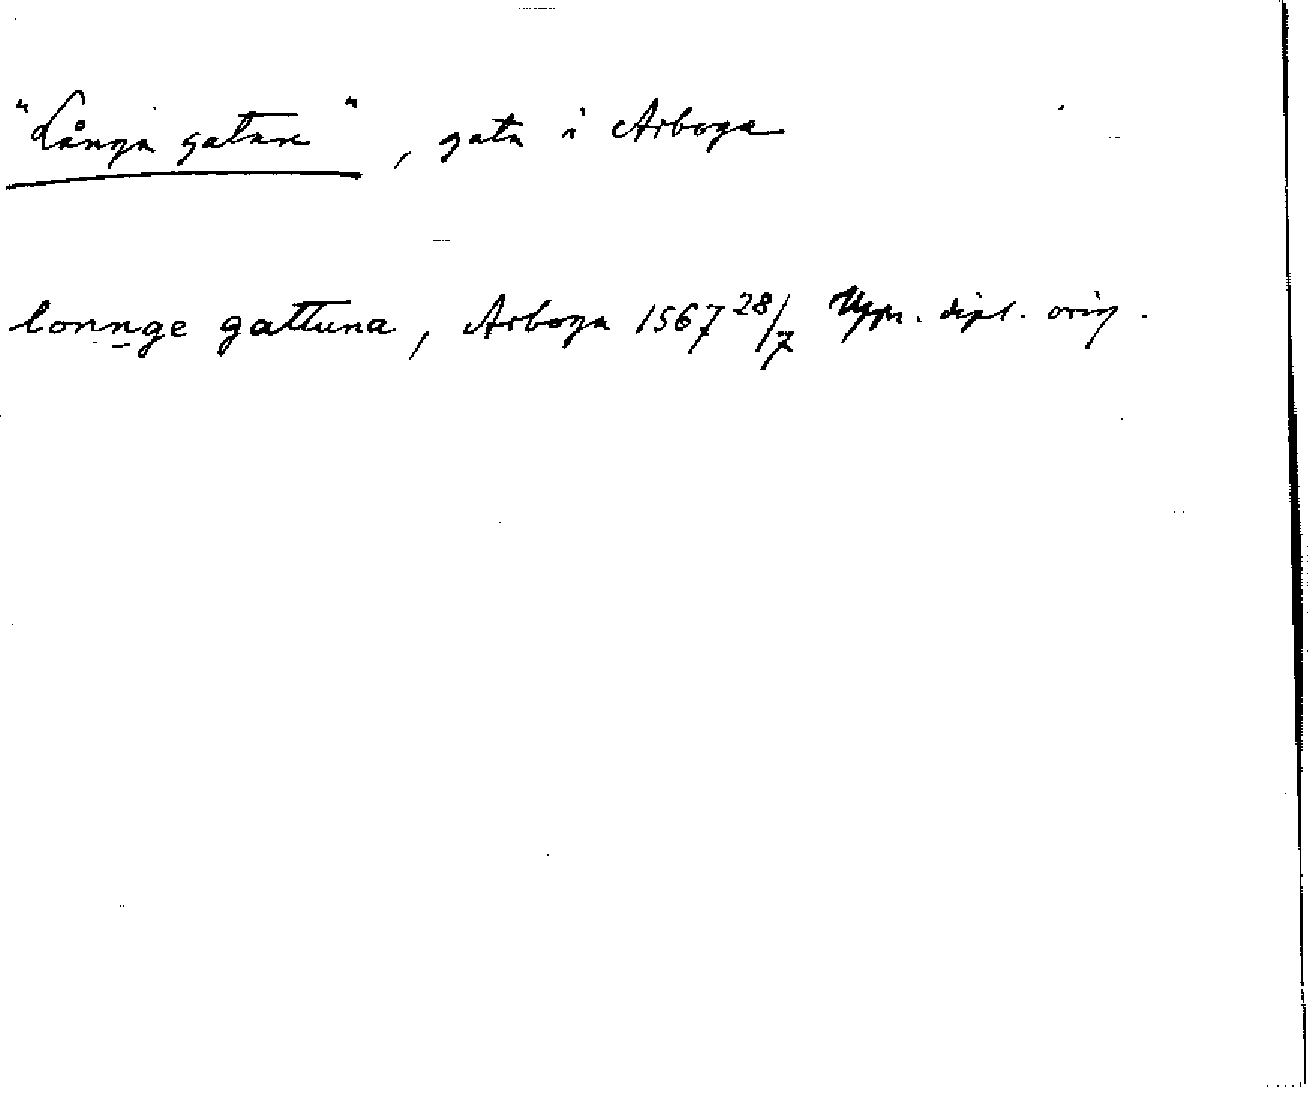 "Långa gatan", gata i Arboga
lonnge gattuna, Arboga 1567 28/7 Upps. dipl. orig.